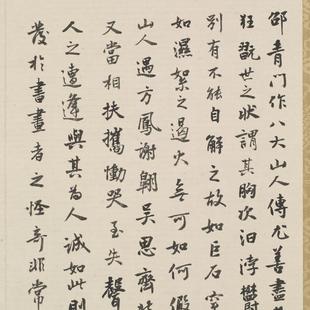 邵青門作八大山人傳尤善盡
狂翫世之狀謂其胸次汩浡鬱
別有不能自解之故如巨石窒
如濕絮之遏火無可如何假
山人遇方鳳謝翱吳思齊
又當相扶攜慟哭至失聲
人之遭逢與其為人誠如此則
發於書畫者之怪奇非常